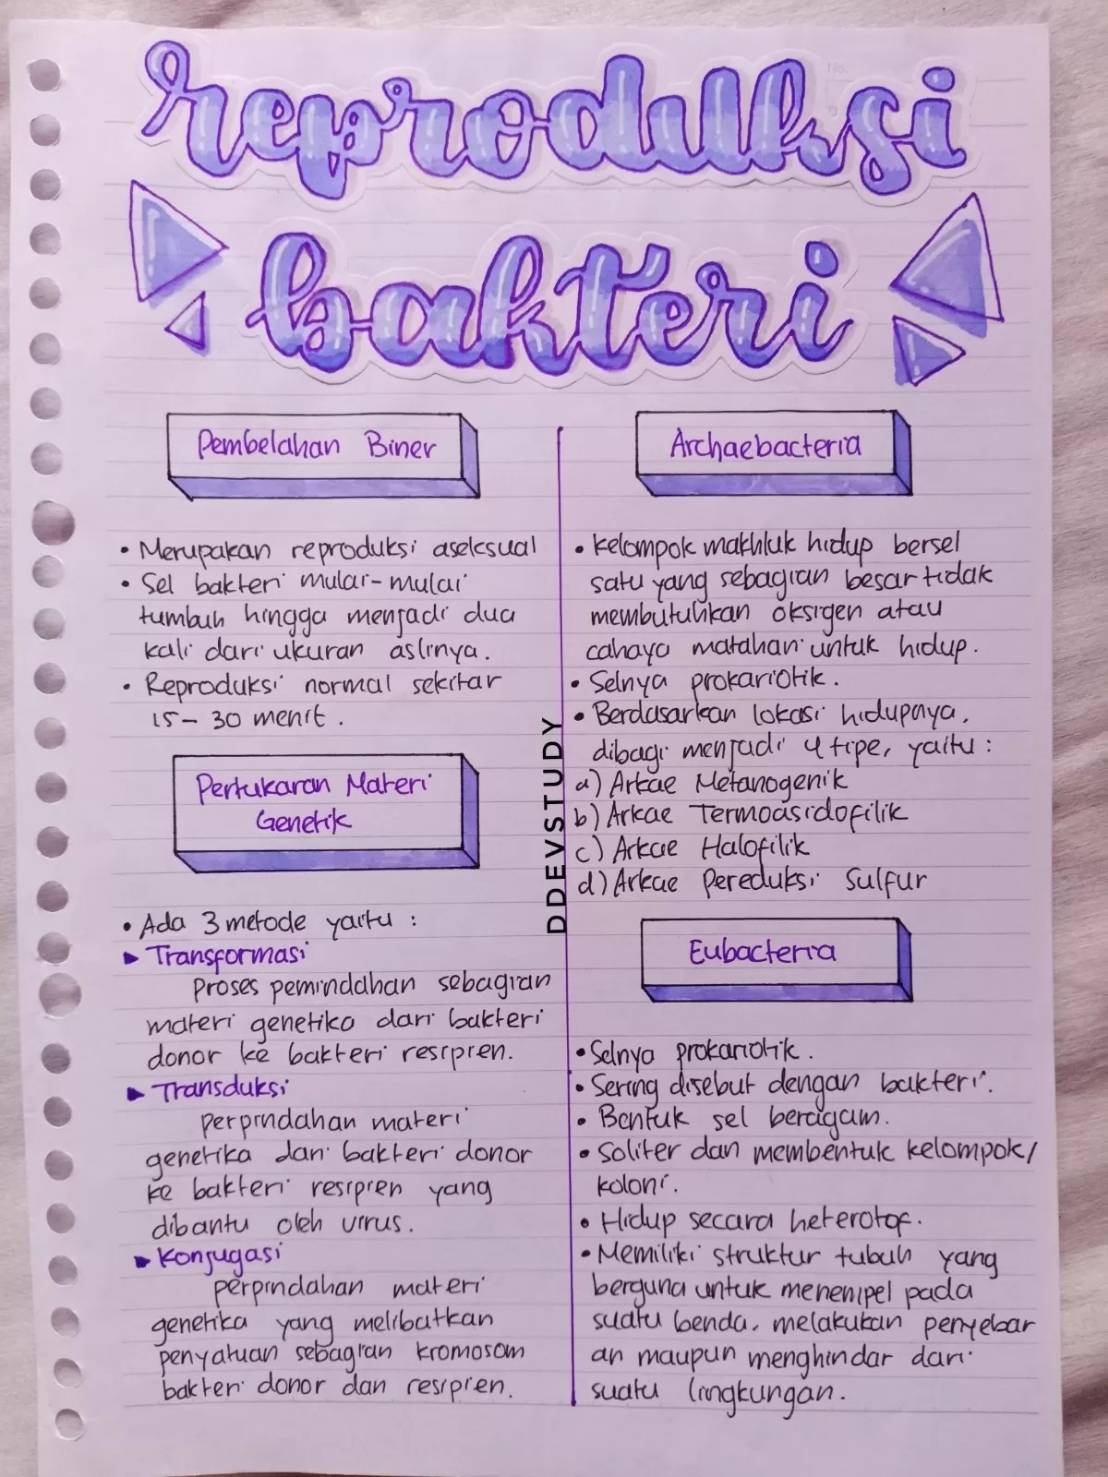 reproduksi
bakteri
Pembelahan Biner
• Merupakan reproduksi aseksual
• Sel bakteri mulai-mulai
tumbuh hingga menjadi dua
kali dari ukuran aslinya.
• Reproduksi normal sekitar
15-30 menit.
Pertukaran Materi
Genetik
• Ada 3 metode yaitu :
▸ Transformasi
Proses pemindahan sebagian
materi genetika dari bakteri
donor ke bakteri resipien.
▸ Transduksi
perpindahan materi
genetika dari bakteri donor
ke bakteri resipien yang
dibantu oleh virus.
▸ Konjugasi
perpindahan materi
genetika yang melibatkan
penyatuan sebagian kromosom
bakteri donor dan resipien.
DDEVSTUDY
Archaebacteria
• Kelompok makhluk hidup bersel
satu yang sebagian besar tidak
membutuhkan oksigen atau
cahaya matahari untuk hidup.
• Selnya prokariotik.
• Berdasarkan lokasi hidupnya,
dibagi menjadi 4 tipe, yaitu :
a) Arkae Metanogenik
b) Arkae Termoasidofilik
c) Arkae Halofilik
d) Arkae Pereduksi Sulfur
Eubacteria
• Selnya prokariotik.
• Sering disebut dengan bakteri.
• Bentuk sel beragam.
• Soliter dan membentuk kelompok/
koloni.
• Hidup secara heterotof.
• Memiliki struktur tubuh yang
berguna untuk menempel pada
suatu benda, melakukan penyebar
an maupun menghindar dari
suatu lingkungan.